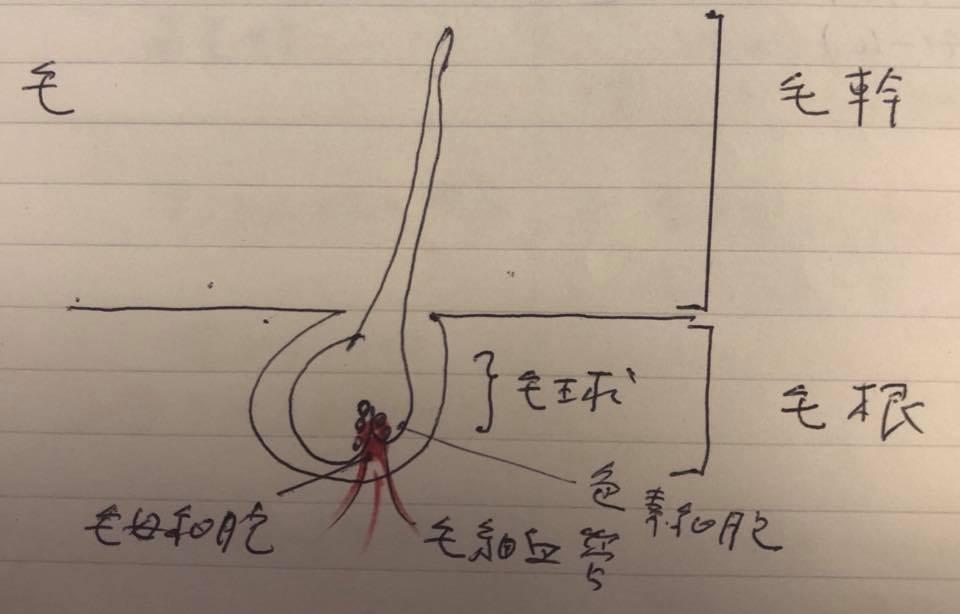 毛
毛幹
毛球
毛根
色素細胞
毛母細胞
毛細血管